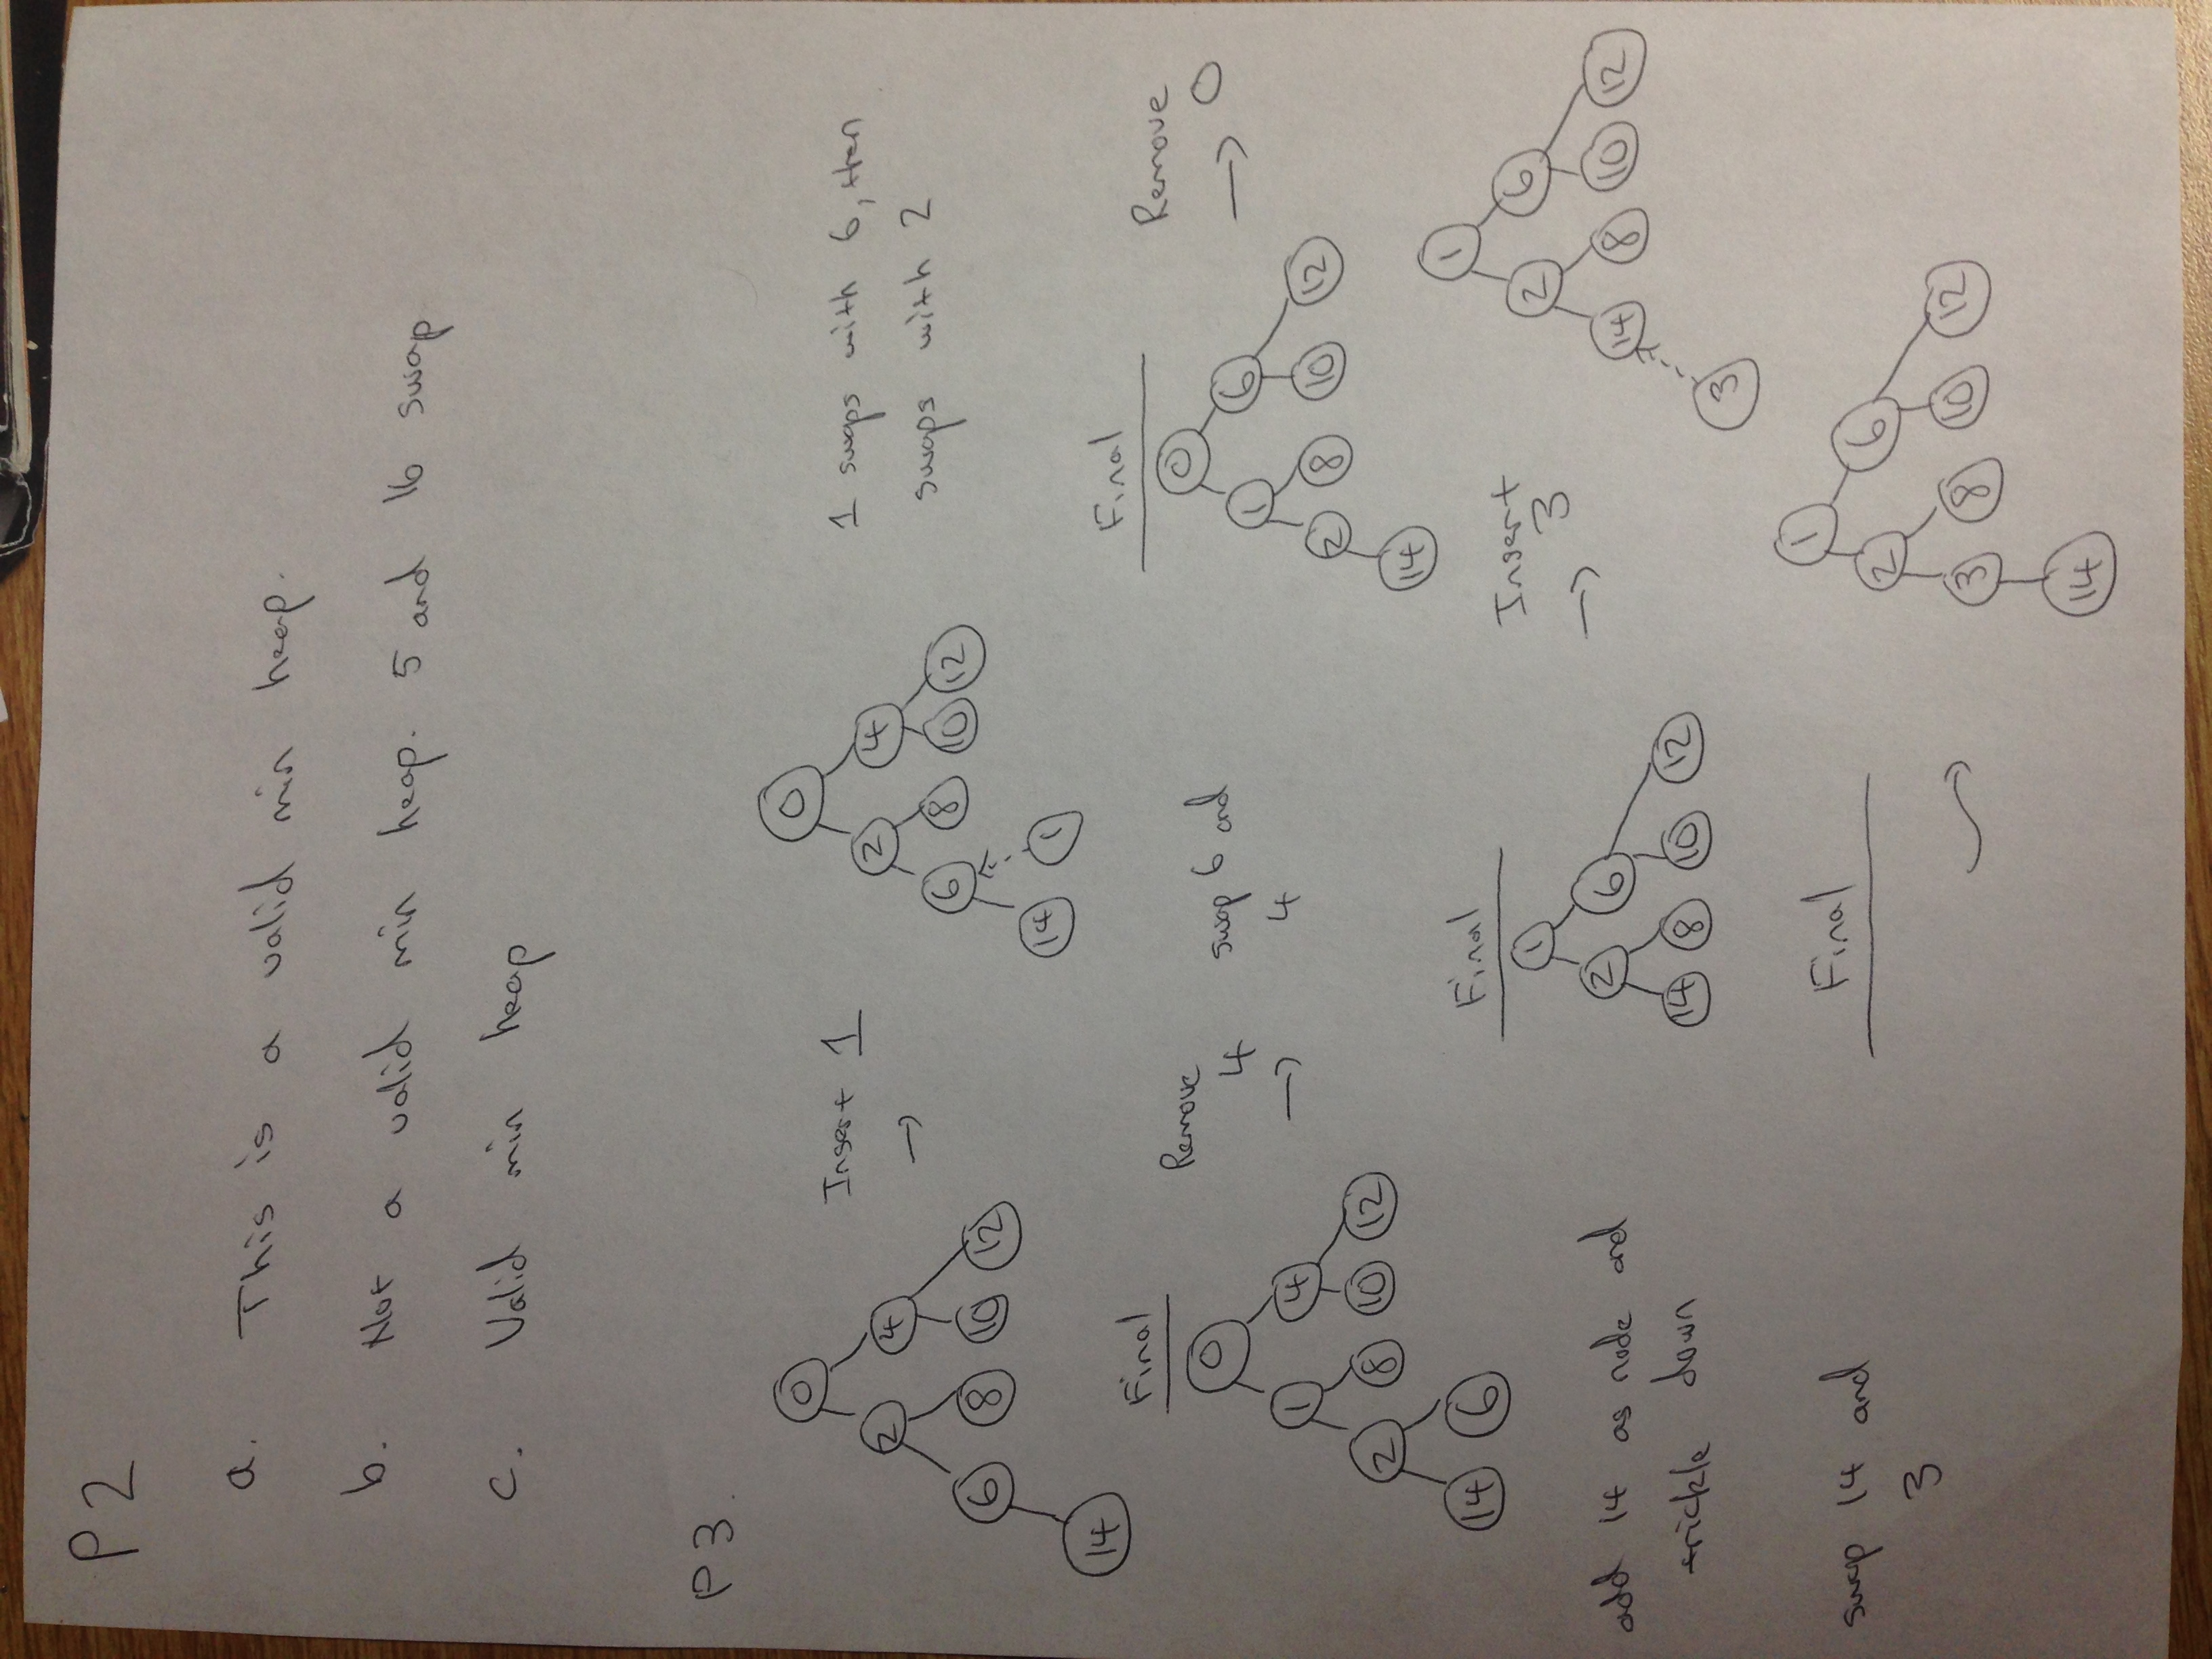 P2
a. This is a valid min heap.
b. Not a valid min heap. 5 and 16 swap
c. Valid min heap
P3.
0
2 4
6 8 10 12
14
Insert 1
→
0
2 4
6 8 10 12
14 1
1 swaps with 6, then
swaps with 2
Final
0
1 4
2 8 10 12
14 6
Remove
4
→
swap 6 and
4
Final
0
1 6
2 8 10 12
14
Remove
→ 0
add 14 as node and
trickle down
Final
1
2 6
14 8 10 12
Insert
3
→
1
2 6
14 8 10 12
3
swap 14 and
3
Final
→
1
2 6
3 8 10 12
14